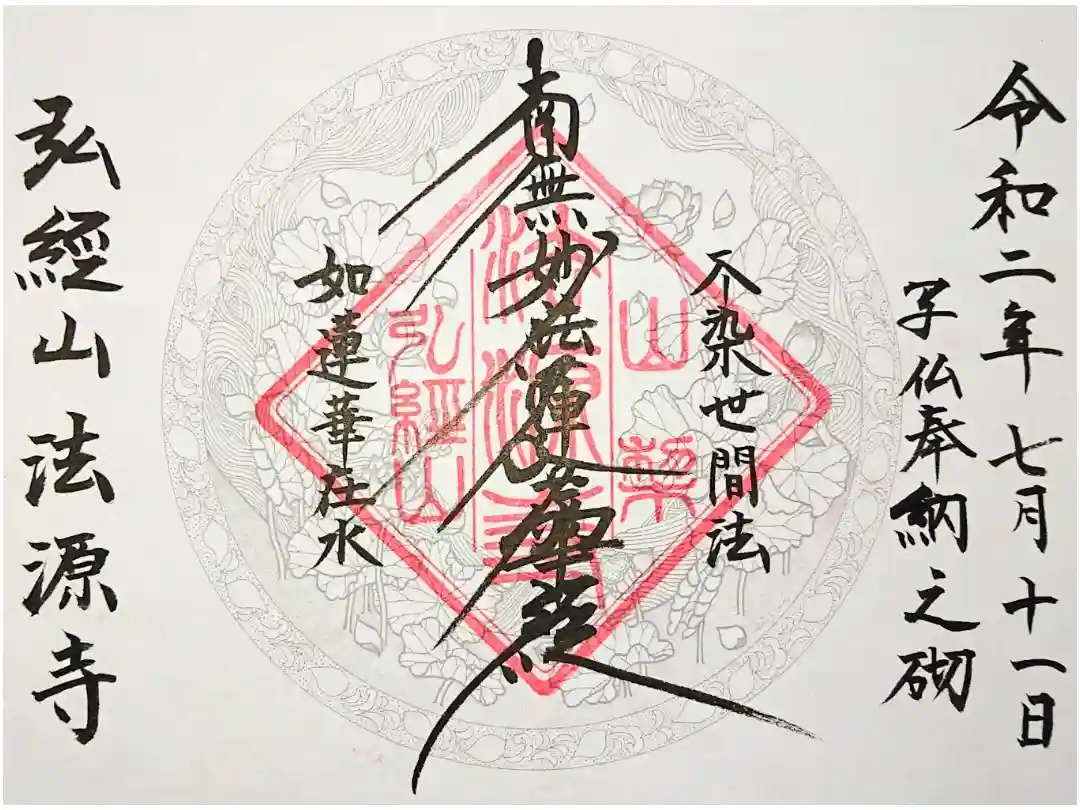 令和二年 七月 十一日
写仏奉納之砌
不染世間法
南無妙法蓮華經
如蓮華在水
弘經山 法源寺
山梨
法源寺
弘經山